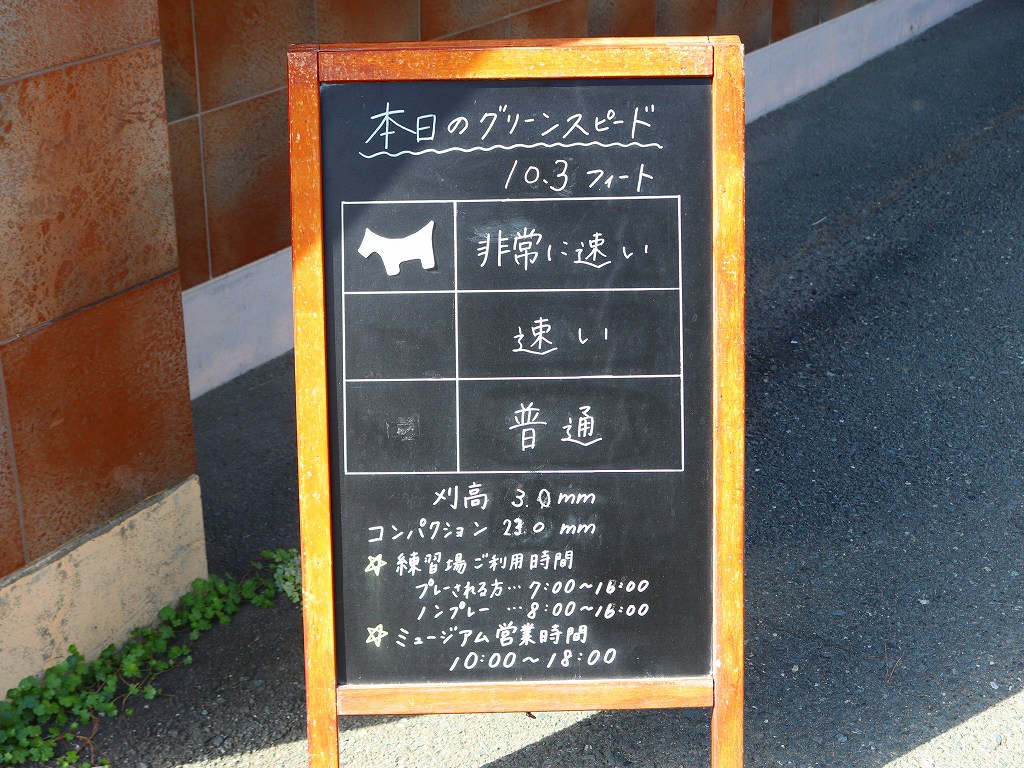 本日のグリーンスピード
10.3 フィート
非常に速い
速い
普通
刈高 3.0mm
コンパクション 23.0 mm
☆ 練習場ご利用時間
プレーされる方…7:00〜16:00
ノンプレー …8:00〜16:00
☆ ミュージアム営業時間
10:00〜18:00